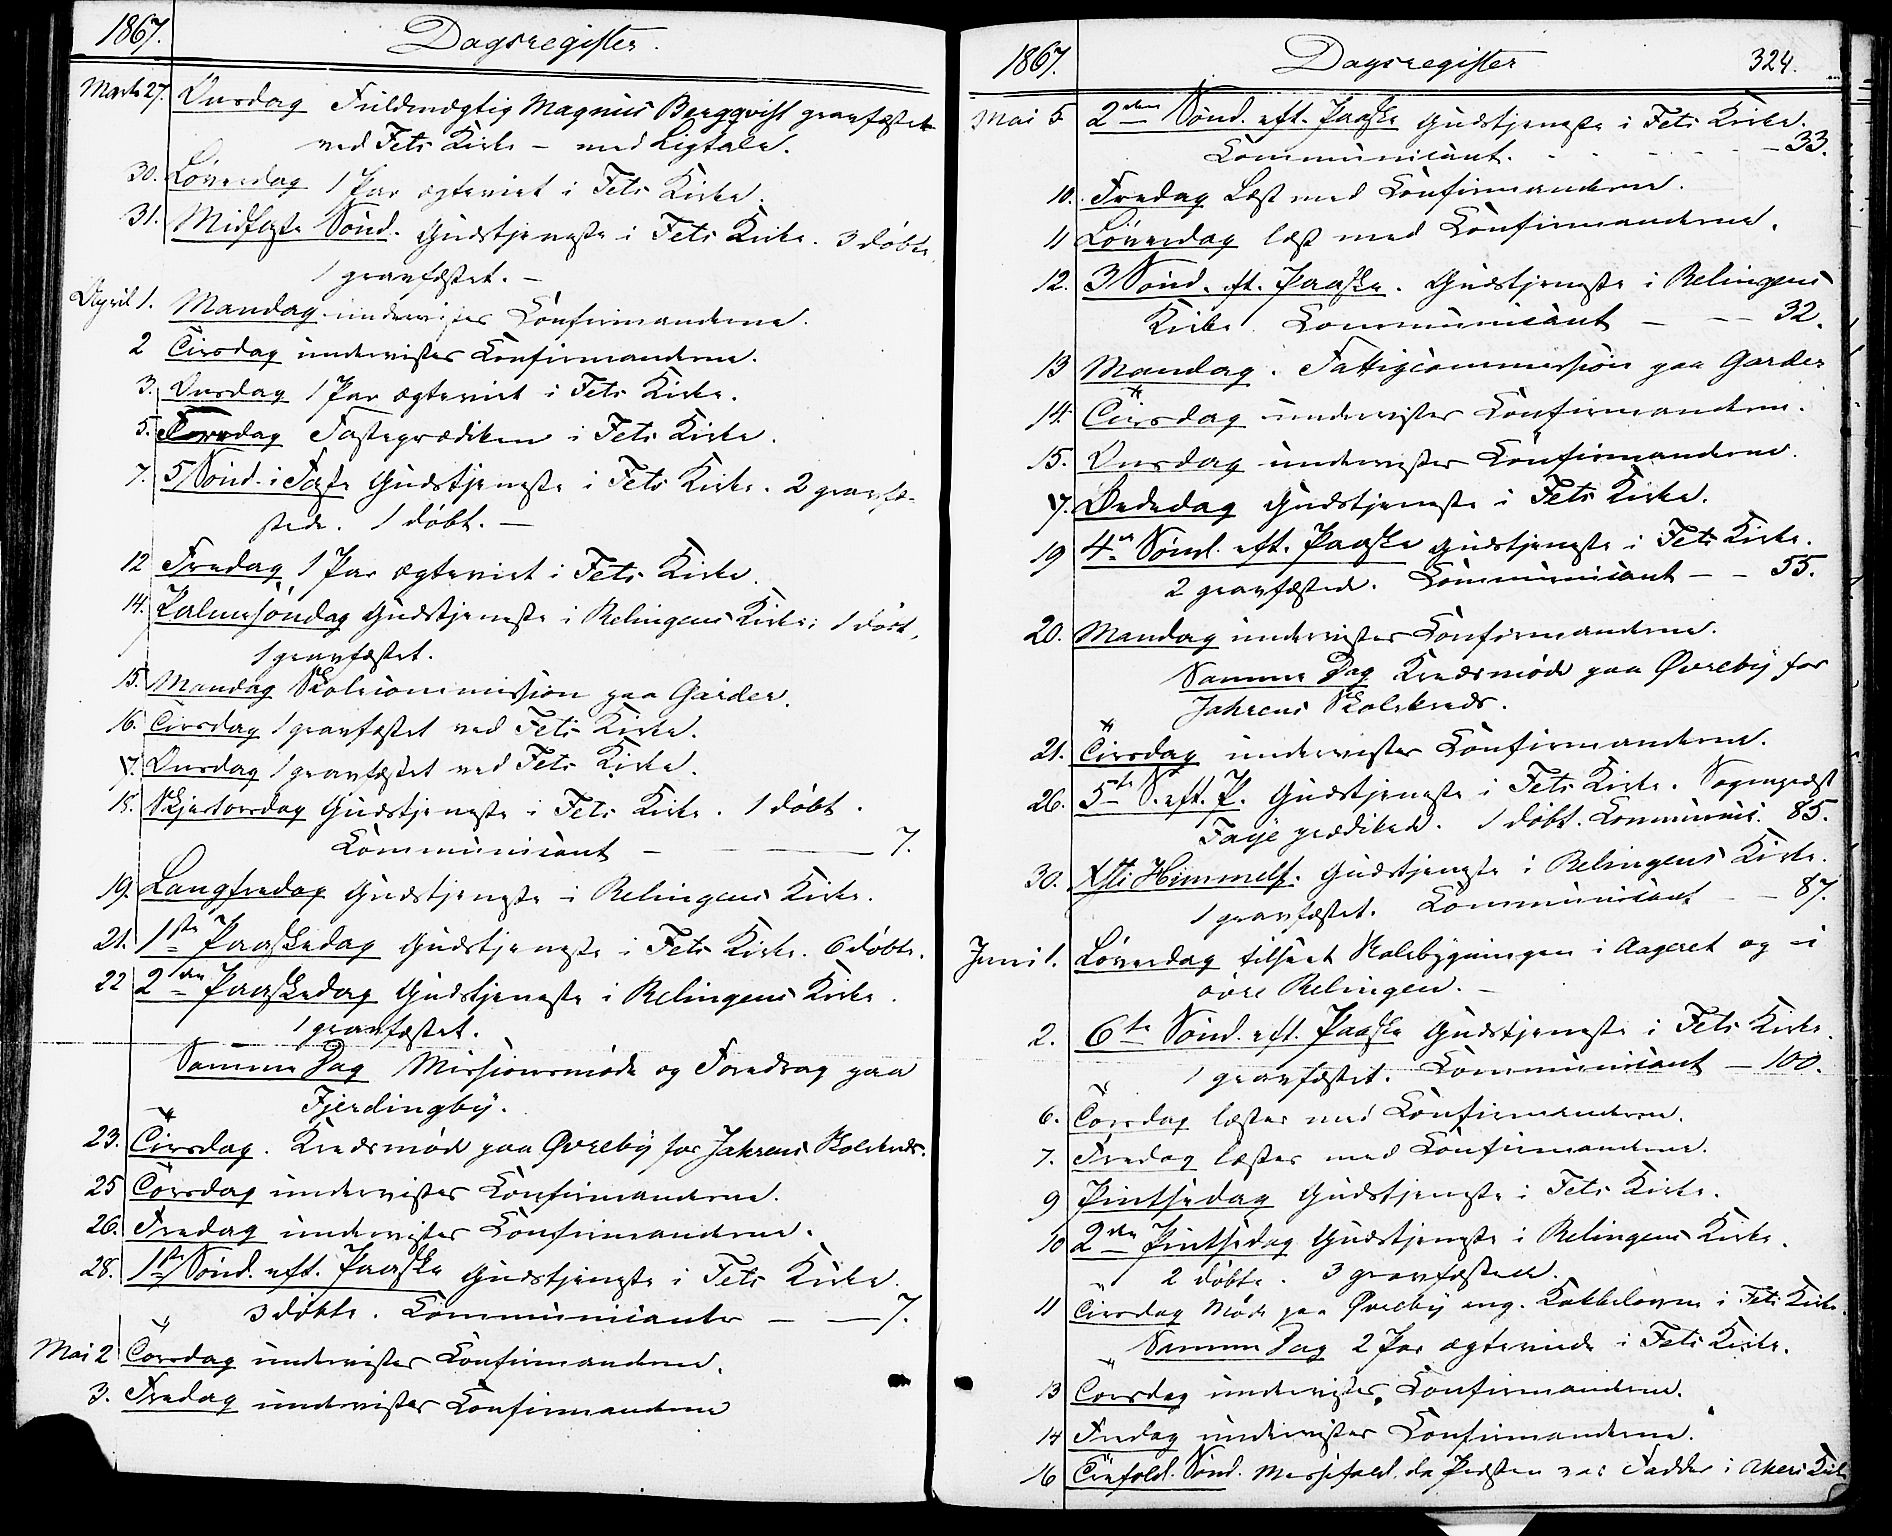 1867. Dagsregister.
Marts 27. Onsdag Fuldmægtig Magnus Bergqvist gravfæstet
ved Fets Kirke – med Ligtale.
30. Løverdag 1 Par ægteviet i Fets Kirke.
31. Midfaste Sønd. Gudstjeneste i Fets Kirke. 3 døbte
1 gravfæstet. –
April 1. Mandag undervistes Confirmanderne.
2 Tirsdag undervistes Confirmanderne.
3. Onsdag 1 Par ægteviet i Fets Kirke.
5. Fredag Fasteprædiken i Fets Kirke.
7. 5 Sønd. i Faste Gudstjeneste i Fets Kirke. 2 gravfæ-
stede. 1 døbt. –
12 Fredag 1 Par ægteviet i Fets Kirke.
14. Palmesøndag Gudstjeneste i Relingens Kirke; 1 døbt,
1 gravfæstet.
15. Mandag Skolecommission paa Garder.
16. Tirsdag 1 gravfæstet ved Fets Kirke.
17. Onsdag 1 gravfæstet ved Fets Kirke.
18. Skjertorsdag Gudstjeneste i Fets Kirke. 1 døbt.
Communicant – – – 7.
19. Langfredag Gudstjeneste i Relingens Kirke.
21. 1ste Paaskedag Gudstjeneste i Fets Kirke. 6 døbte.
22 2den Paaskedag Gudstjeneste i Relingens Kirke.
1 gravfæstet.
Samme Dag Missionsmøde og Foredrag paa
Fjerdingby.
23. Tirsdag. Kredsmøde paa Øvreby for Jahrens Skolekreds.
25 Torsdag undervistes Confirmanderne.
26. Fredag undervistes Confirmanderne.
28. 1ste Sønd. eft. Paaske Gudstjeneste i Fets Kirke.
3 døbte. Communicanter – – 7.
Mai 2 Torsdag undervistes Confirmanderne.
3. Fredag undervistes Confirmanderne
1867. Dagsregister 324.
Mai 5 2den Sønd. eft. Paaske Gudstjeneste i Fets Kirke.
Communicant. - - - - - 33.
10. Fredag Læst med Confirmanderne.
11 Løverdag læst med Confirmanderne.
12. 3 Sønd. eft. Paaske. Gudstjeneste i Relingens
Kirke. Communicant – – – 32.
13 Mandag. Fattigcommission paa Garder
14. Tirsdag undervistes Confirmanderne.
15. Onsdag undervistes Confirmanderne.
17. Bededag Gudstjeneste i Fets Kirke.
19 4de Sønd. eft. Paaske Gudstjeneste i Fets Kirke.
2 gravfæstede. Communicant – – 55.
20. Mandag undervistes Confirmanderne.
Samme Dag Kredsmøde paa Øvreby for
Jahrens Skolekreds.
21. Tirsdag undervistes Confirmanderne.
26. 5te S. eft. P. Gudstjeneste i Fets Kirke. Sognepræst
Faye prædikede. 1 døbt. Communic. 85.
30. Xsti Himmelf. Gudstjeneste i Relingens Kirke.
1 gravfæstet. Communicant – – 87.
Juni 1. Løverdag tilseet Skolebygningen i Aageret og i
øvre Relingen. –
2. 6te Sønd. eft. Paaske Gudstjeneste i Fets Kirke.
1 gravfæstet. Communicant – 100.
6. Torsdag læstes med Confirmanderne.
7. Fredag læstes med Confirmanderne.
9 Pintsedag Gudstjeneste i Fets Kirke.
10 2den Pintsedag Gudstjeneste i Relingens Kirke.
2 døbte. 3 gravfæstede.
11 Tirsdag Møde paa Øvreby ang. Kakkelovne i Fets Kirke.
Samme Dag 2 Par ægteviede i Fets Kirke.
13 Torsdag undervistes Confirmanderne.
14 Fredag undervistes Confirmanderne.
16 Trefold. Sønd. Messefald, da Præsten var Fadder i Akers Kirke